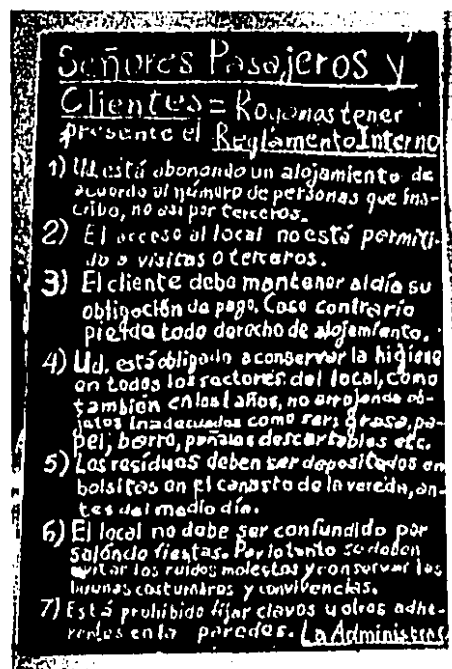 Señores Pasajeros y
Clientes = Rogamos tener
presente el Reglamento Interno
1) Ud. está abonando un alojamiento de
acuerdo al número de personas que ins-
cribo, no así por terceros.
2) El acceso al local no está permiti-
do a visitas o terceros.
3) El cliente debe mantener al día su
obligación de pago. Caso contrario
pierde todo derecho de alojamiento.
4) Ud. está obligado a conservar la higiene
en todos los sectores del local, como
también en los baños, no arrojando ob-
jetos inadecuados como ser: grasa, pa-
pel, borra, pañales descartables etc.
5) Los residuos deben ser depositados en
bolsitas en el canasto de la vereda, an-
tes del medio día.
6) El local no debe ser confundido por
salón de fiestas. Por lo tanto se deben
evitar los ruidos molestos y conservar las
buenas costumbres y convivencias.
7) Está prohibido fijar clavos y otros adhe-
rentes en la paredes. La Administrac